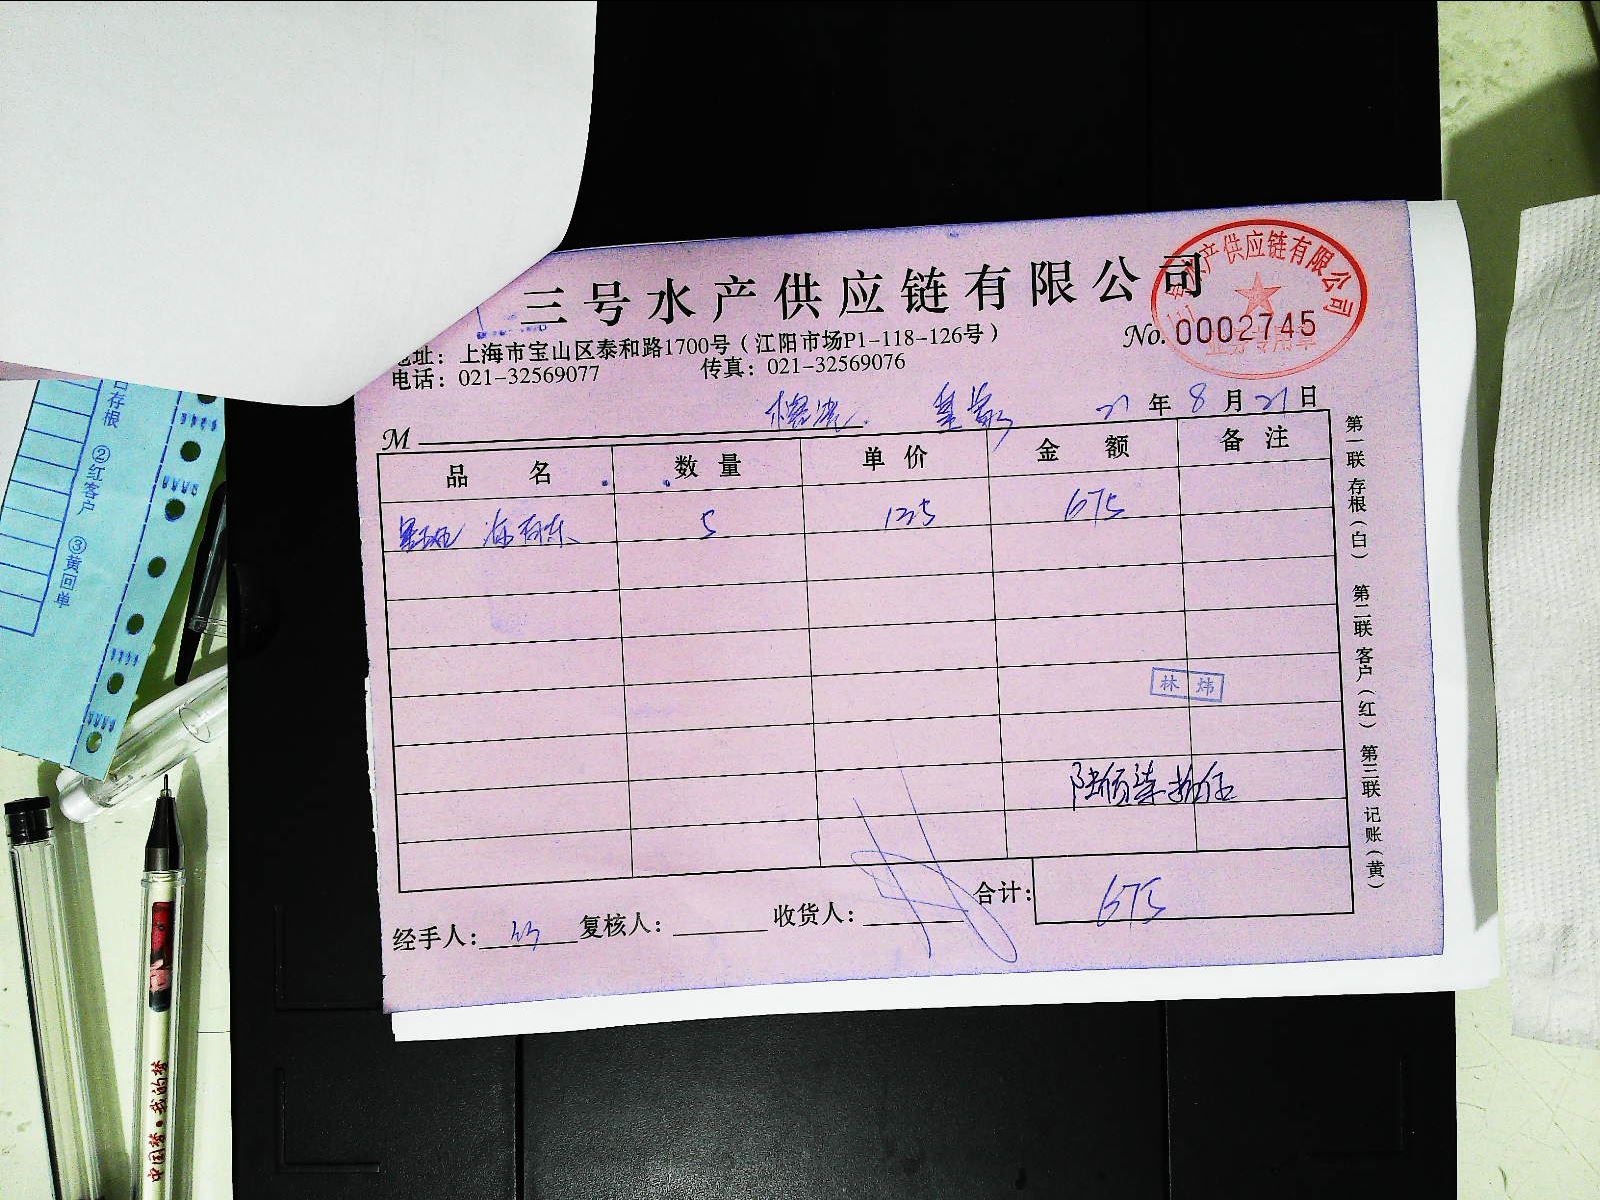 三号水产供应链有限公司
产供应链有限公司
业务专用章
No. 0002745
地址：上海市宝山区泰和路1700号（江阳市场P1-118-126号）
电话：021-32569077 传真：021-32569076
M
21年8月21日
品名 数量 单价 金额 备注
5 135 675
林炜
陆佰柒拾伍
合计： 675
经手人： 复核人： 收货人：
第一联 存根（白） 第二联 客户（红） 第三联 记账（黄）
存根 ②红客户 ③黄回单
中国梦·我的梦